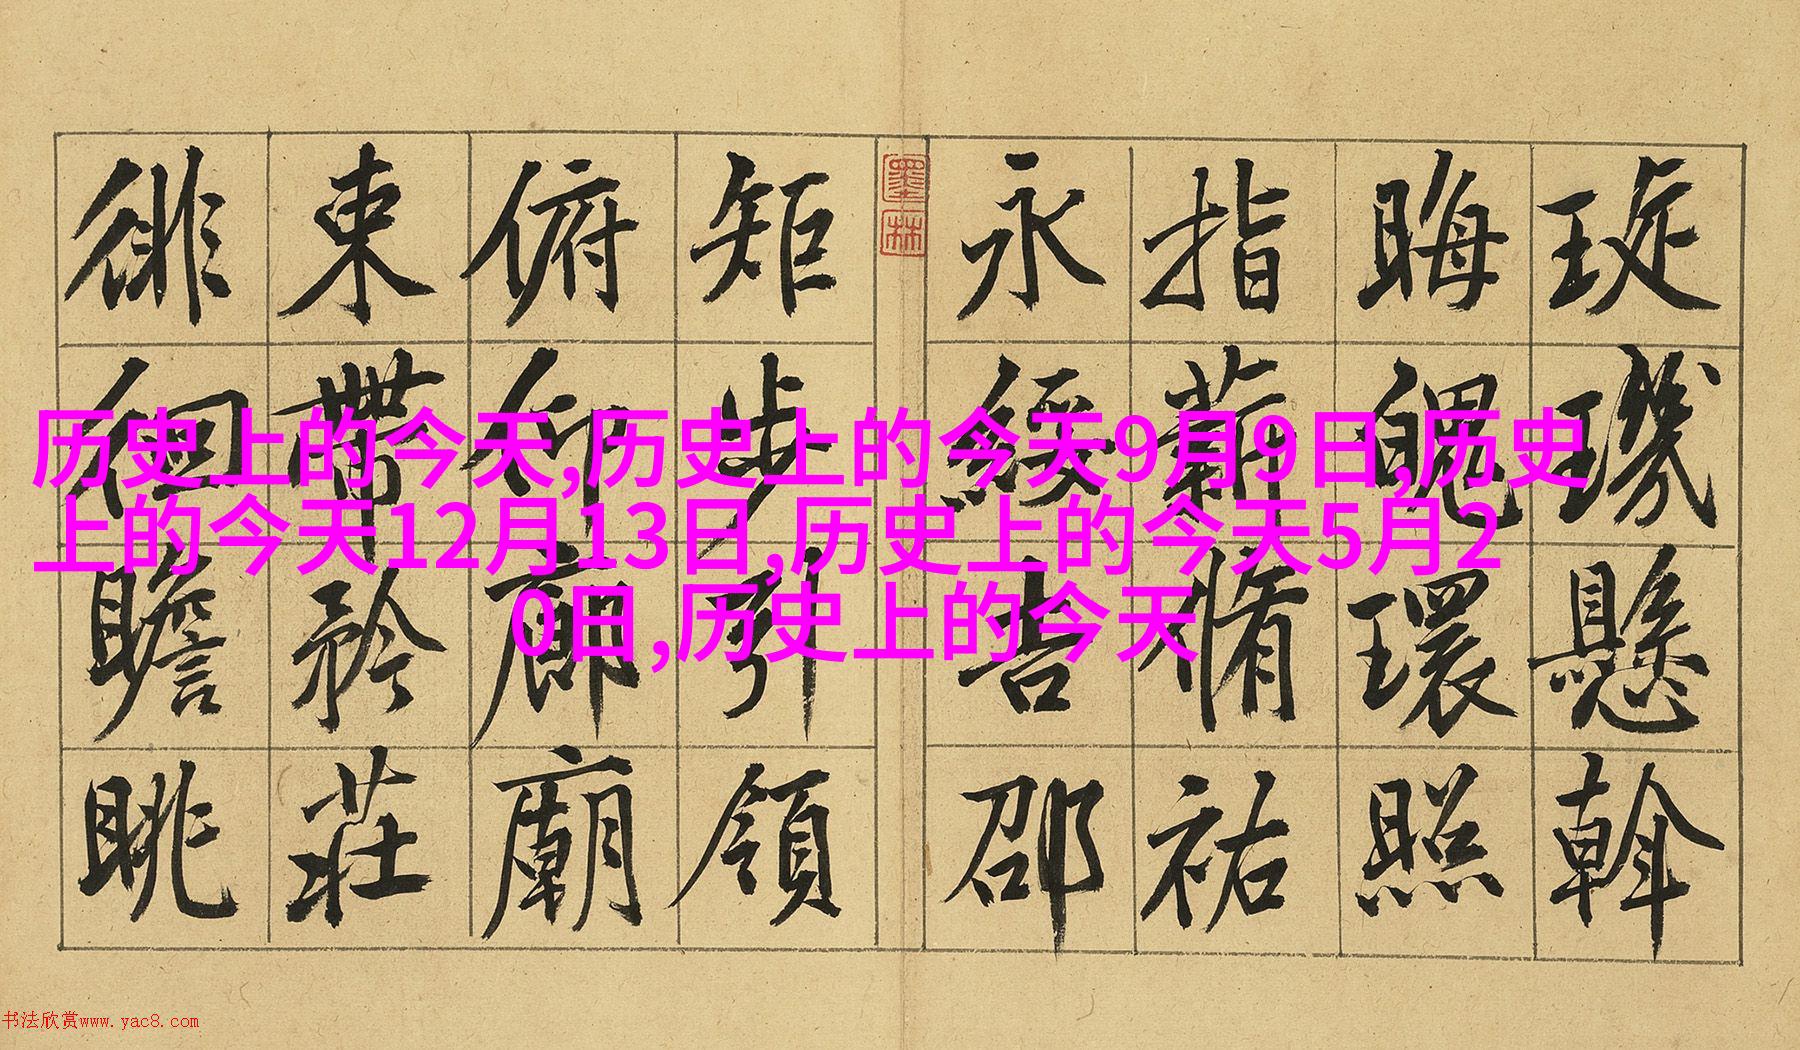 琁璣懸斡
晦魄環照
指薪脩祐
永綏吉邵
墨林
矩步引領
俯仰廊廟
束帶矜莊
徘徊瞻眺
历史上的今天,历史上的今天9月9日,历史
上的今天12月13日,历史上的今天5月2
0日,历史上的今天
书法欣赏www.yac8.com